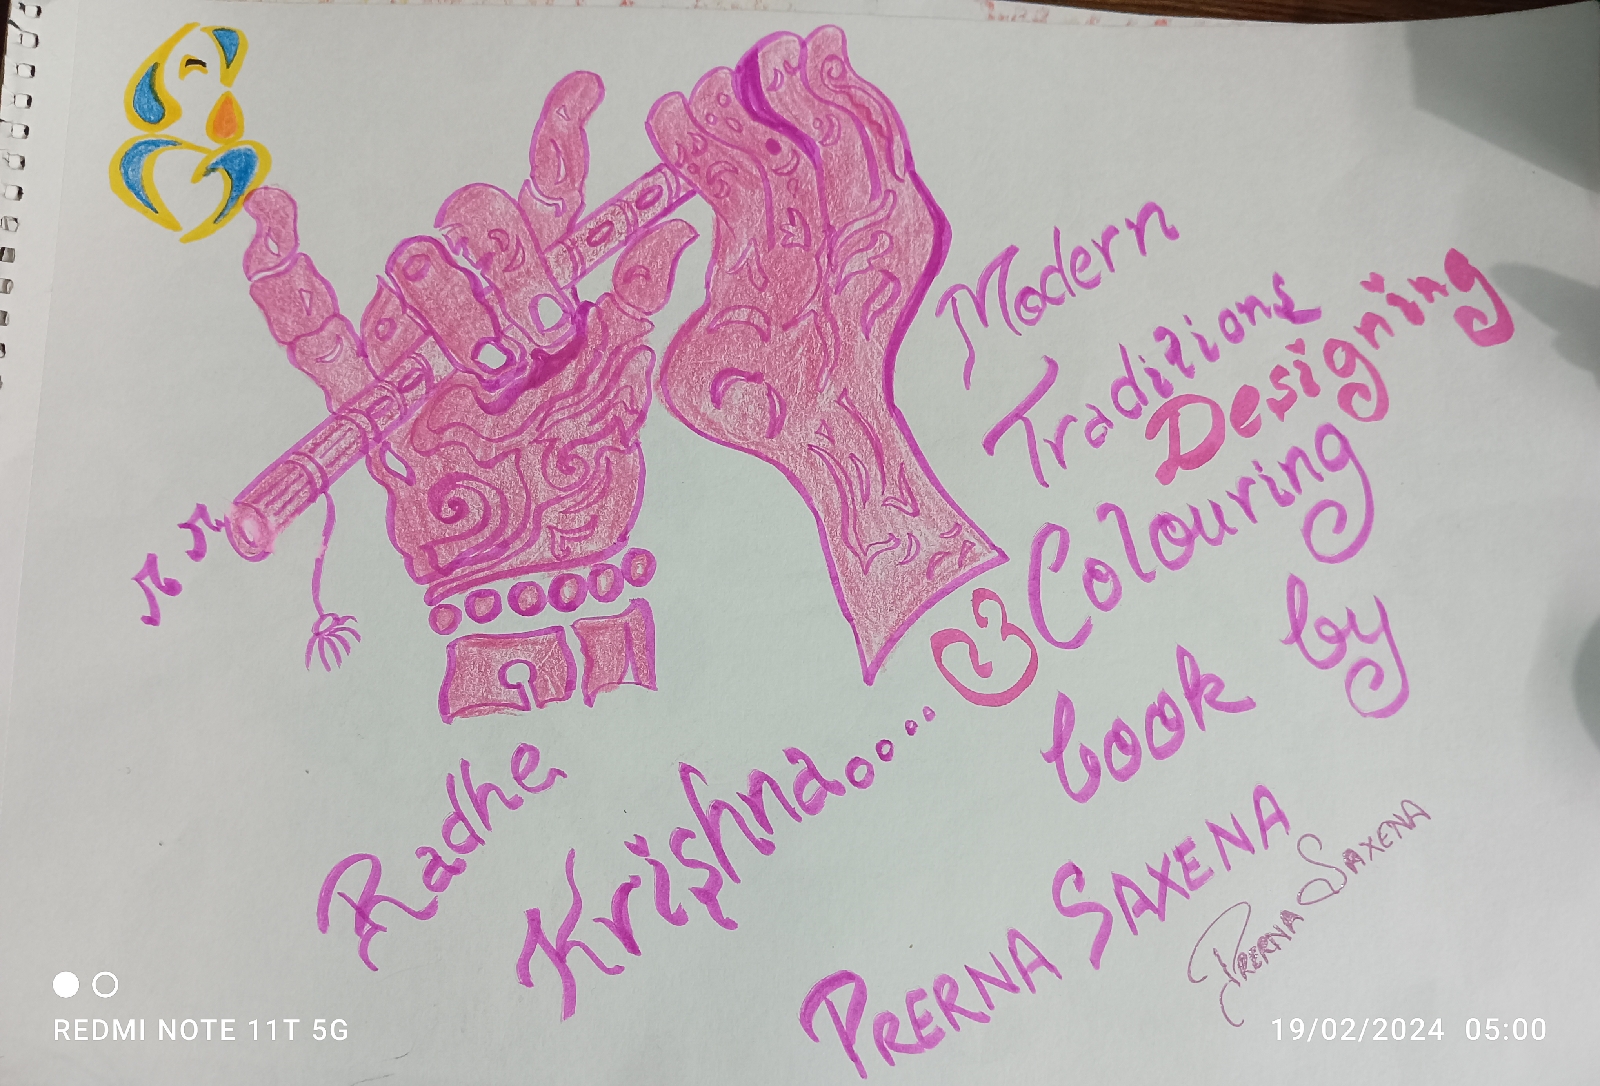 Modern
Traditions
Designing
Colouring
book by
Radhe
Krishna....
PRERNA SAXENA
PRERNA SAXENA
REDMI NOTE 11T 5G
19/02/2024 05:00